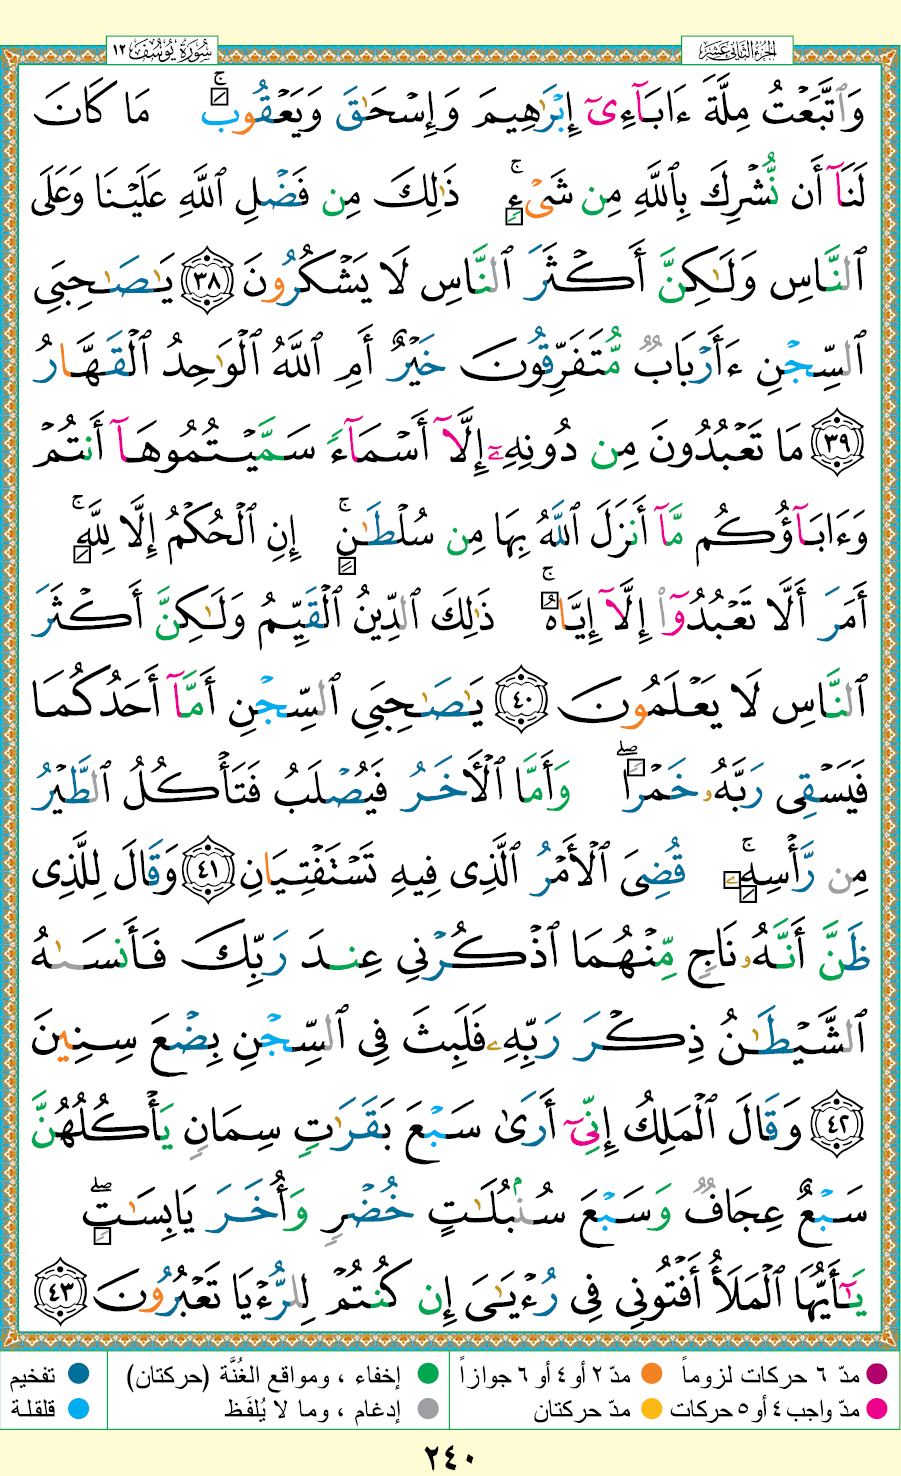 سُورَةُ يُوسُفَ ١٢
الجزء الثاني عشر
وَٱتَّبَعْتُ مِلَّةَ ءَابَآءِىٓ إِبْرَٰهِيمَ وَإِسْحَٰقَ وَيَعْقُوبَ ۚ مَا كَانَ
لَنَآ أَن نُّشْرِكَ بِٱللَّهِ مِن شَىْءٍ ۚ ذَٰلِكَ مِن فَضْلِ ٱللَّهِ عَلَيْنَا وَعَلَى
ٱلنَّاسِ وَلَٰكِنَّ أَكْثَرَ ٱلنَّاسِ لَا يَشْكُرُونَ ٣٨ يَٰصَٰحِبَىِ
ٱلسِّجْنِ ءَأَرْبَابٌ مُّتَفَرِّقُونَ خَيْرٌ أَمِ ٱللَّهُ ٱلْوَٰحِدُ ٱلْقَهَّارُ
٣٩ مَا تَعْبُدُونَ مِن دُونِهِۦٓ إِلَّآ أَسْمَآءً سَمَّيْتُمُوهَآ أَنتُمْ
وَءَابَآؤُكُم مَّآ أَنزَلَ ٱللَّهُ بِهَا مِن سُلْطَٰنٍ ۚ إِنِ ٱلْحُكْمُ إِلَّا لِلَّهِ ۚ
أَمَرَ أَلَّا تَعْبُدُوٓا۟ إِلَّآ إِيَّاهُ ۚ ذَٰلِكَ ٱلدِّينُ ٱلْقَيِّمُ وَلَٰكِنَّ أَكْثَرَ
ٱلنَّاسِ لَا يَعْلَمُونَ ٤٠ يَٰصَٰحِبَىِ ٱلسِّجْنِ أَمَّآ أَحَدُكُمَا
فَيَسْقِى رَبَّهُۥ خَمْرًا ۖ وَأَمَّا ٱلْأَخَرُ فَيُصْلَبُ فَتَأْكُلُ ٱلطَّيْرُ
مِن رَّأْسِهِۦ ۚ قُضِىَ ٱلْأَمْرُ ٱلَّذِى فِيهِ تَسْتَفْتِيَانِ ٤١ وَقَالَ لِلَّذِى
ظَنَّ أَنَّهُۥ نَاجٍ مِّنْهُمَا ٱذْكُرْنِى عِندَ رَبِّكَ فَأَنسَىٰهُ
ٱلشَّيْطَٰنُ ذِكْرَ رَبِّهِۦ فَلَبِثَ فِى ٱلسِّجْنِ بِضْعَ سِنِينَ
٤٢ وَقَالَ ٱلْمَلِكُ إِنِّىٓ أَرَىٰ سَبْعَ بَقَرَٰتٍ سِمَانٍ يَأْكُلُهُنَّ
سَبْعٌ عِجَافٌ وَسَبْعَ سُنۢبُلَٰتٍ خُضْرٍ وَأُخَرَ يَابِسَٰتٍ ۖ
يَٰٓأَيُّهَا ٱلْمَلَأُ أَفْتُونِى فِى رُءْيَٰىَ إِن كُنتُمْ لِلرُّءْيَا تَعْبُرُونَ ٤٣
مدّ ٦ حركات لزوماً مدّ ٢ أو ٤ أو ٦ جوازاً إخفاء ، ومواقع الغُنَّة (حركتان) تفخيم
مدّ واجب ٤ أو ٥ حركات مدّ حركتان إدغام ، وما لا يُلفَظ قلقلة
٢٤٠